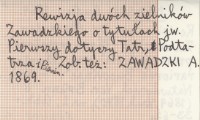 Rewizja dwóch zielników
Zawadzkiego o tytułach jw.
Pierwszy dotyczy Tatr, II Podta-
trza i Zob. też: ZAWADZKI A.
1869.